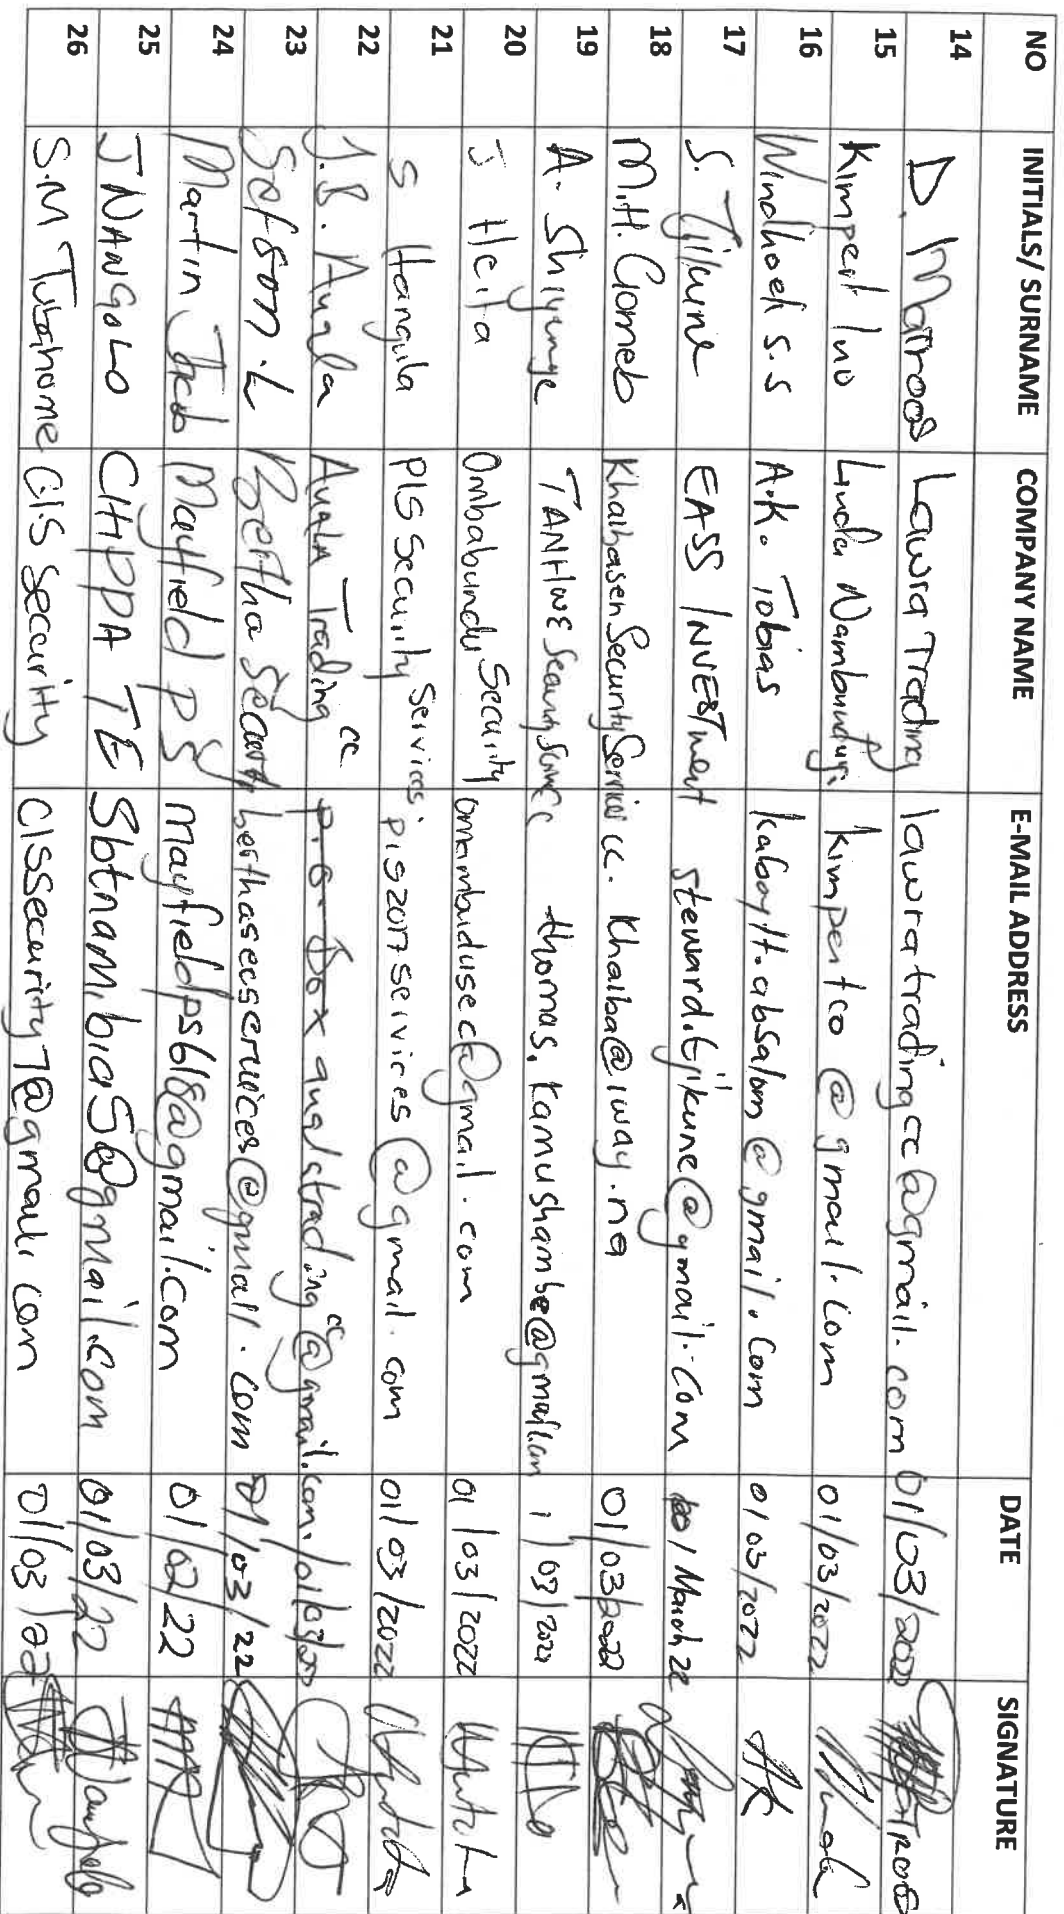 NO INITIALS/ SURNAME COMPANY NAME E-MAIL ADDRESS DATE SIGNATURE
14 D. Matroos Lawra Trading lawratradingcc@gmail.com 01/03/2022
15 Kimpert Ino Linda Nambunduga kimpertco @ gmail.com 01/03/2022
16 Windhoek S.S A.K. Tobias kaboylt.absalom @ gmail.com 01/03/2022
17 S. Tjikune EASS INVESTment steward.tjikune@gmail.com 01 March 22
18 M.H. Gomeb Khaibasen Security Service cc. Khaiba@iway.na 01/03/2022
19 A. Shiyunge TANHWE Security Service thomas.kamushambe@gmail.com 1/03/2022
20 J Heita Ombabundu Security omambudusect@gmail.com 01/03/2022
21 S Hangula PIS Security Services. pis2017services@gmail.com 01/03/2022
22 J.B. Auala AUALA Trading cc P.O. Box aualatrading cc@gmail.com. 01/03/20
23 Sefson.L Bertha Security berthasecservices@gmail.com 01/03/22
24 Martin Jacob Mayfield PS mayfieldps618@gmail.com 01/02/22
25 J NANGOLO CHIPPA TE Sbtnamibia5@gmail.com 01/03/22
26 S.M Tutahome C.I.S Security cissecurity7@gmail.com 01/03/22